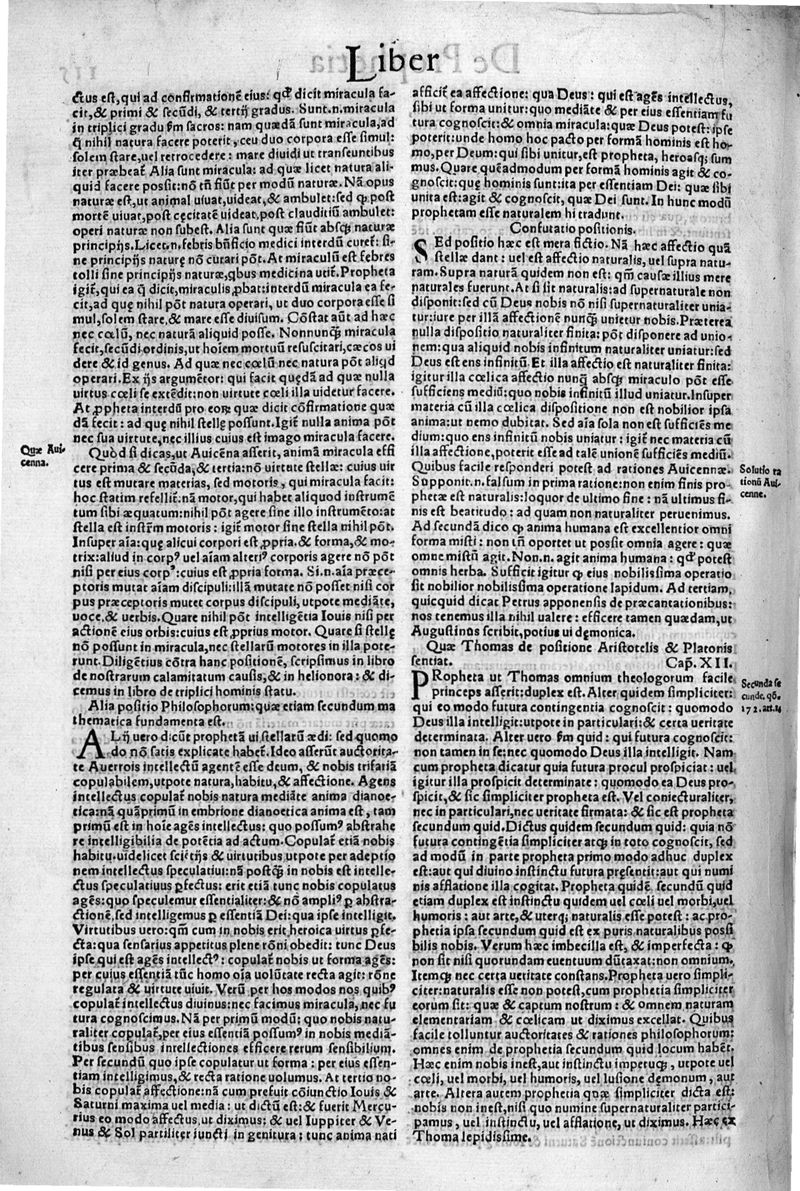 Liber
ctus est, qui ad confirmationē eius: qđ dicit miracula fa-
cit, & primi & secūdi, & tertij gradus. Sunt.n. miracula
in triplici gradu ꝑm sacros: nam quædā sunt miracula, ad
q̄ nihil natura facere poterit, ceu duo corpora esse simul:
solem stare, uel retrocedere: mare diuidi ut transeuntibus
iter præbeat̃. Alia sunt miracula: ad quæ licet natura ali-
quid facere possit: nō tñ fiūt per modū naturæ. Nā opus
naturæ est, ut animal uiuat, uideat, & ambulet: sed ꝙ post
mortē uiuat, post cęcitatē uideat, post clauditiū ambulet:
operi naturæ non subest. Alia sunt quæ fiūt absq; naturæ
principijs. Licet.n. febris bñficio medici interdū curet̃: si-
ne principijs naturę nō curari pōt. At miraculū est febres
tolli sine principijs naturæ, qbus medicina utit̃. Propheta
igit̃, qui ea q̄ dicit, miraculis ꝓbat: interdū miracula ea fe-
cit, ad quę nihil pōt natura operari, ut duo corpora esse si
mul, solem stare, & mare esse diuisum. Cōstat aūt ad hæc
nec cœlū, nec naturā aliquid posse. Nonnunq̄ miracula
fecit, secūdi ordinis, ut hoiem mortuū resuscitari, cæcos ui
dere & id genus. Ad quæ nec cœlū nec natura pōt aliqd
operari. Ex ijs argumētor: qui facit quędā ad quæ nulla
uirtus cœli se extēdit: non uirtute cœli illa uidetur facere.
At ꝓpheta interdū pro eorꝶ quæ dicit cōfirmatione quæ
dā fecit: ad quę nihil stellę possunt. Igit̃ nulla anima pōt
nec sua uirtute, nec illius cuius est imago miracula facere.
Quæ Aui-
cenna.
Quòd si dicas, ut Auicēna asserit, animā miracula effi
cere prima & secūda, & tertia: nō uirtute stellæ: cuius uir
tus est mutare materias, sed motoris, qui miracula facit:
hoc statim refellit̃. nā motor, qui habet aliquod instrumē
tum sibi æquatum: nihil pōt agere sine illo instrumēto: at
stella est instr̃m motoris: igit̃ motor sine stella nihil pōt.
Insuper aīa: quę alicui corpori est ꝓpria. & forma, & mo-
trix: aliud in corpꝰ uel aīam alteriꝰ corporis agere nō pōt
nisi per eius corpꝰ: cuius est ꝓpria forma. Si.n. aīa præce-
ptoris mutat aīam discipuli: illā mutate nō posset nisi cor
pus præceptoris mutet corpus discipuli, utpote mediāte,
uoce, & uerbis. Quare nihil pōt intelligētia Iouis nisi per
actionē eius orbis: cuius est ꝓprius motor. Quare si stellę
nō possunt in miracula, nec stellarū motores in illa pote-
runt. Diligētius cōtra hanc positionē, scripsimus in libro
de nostrarum calamitatum causis, & in helionora: & di-
cemus in libro de triplici hominis statu.
Alia positio Philosophorum: quæ etiam secundum ma
thematica fundamenta est.
ALij uero dicūt prophetā ui stellarū ædi: sed quomo
do nō satis explicate habet̃. Ideo asserūt auctorita-
te Auerrois intellectū agentē esse deum, & nobis trifariā
copulabilem, utpote natura, habitu, & affectione. Agens
intellectus copulat̃ nobis natura mediāte anima dianoe-
tica: nā quāprimū in embrione dianoetica anima est, tam
primū est in hoīe agēs intellectus: quo possumꝰ abstrahe
re intelligibilia de potētia ad actum. Copulat̃ etiā nobis
habitu. uidelicet sciētijs & uirtutibus utpote per adeptio
nem intellectus speculatiui: nā postq̄ in nobis est intelle-
ctus speculatiuus ꝑfectus: erit etiā tunc nobis copulatus
agēs: quo speculemur essentialiter: & nō ampliꝰ ꝑ abstra-
ctionē, sed intelligemus ꝑ essentiā Dei: qua ipse intelligit.
Virtutibus uero: qm̄ cum in nobis erit heroica uirtus ꝑfe-
cta: qua sensarius appetitus plene rōni obedit: tunc Deus
ipse qui est agēs intellectꝰ: copulat̃ nobis ut forma agēs:
per cuius essentiā tūc homo oīa uolūtate recta agit: rōne
regulata & uirtute uiuit. Verū per hos modos nos quibꝰ
copulat̃ intellectus diuinus: nec facimus miracula, nec fu
tura cognoscimus. Nā per primū modū: quo nobis natu-
raliter copulat̃, per eius essentiā possumꝰ in nobis mediā-
tibus sensibus intellectiones efficere rerum sensibilium.
Per secundū quo ipse copulatur ut forma: per eius essen-
tiam intelligimus, & recta ratione uolumus. At tertio no-
bis copulat̃ affectione: nā cum prefuit cōiunctio Iouis &
Saturni maxima uel media: ut dictū est: & fuerit Mercu-
rius eo modo affectus, ut diximus: & uel Iuppiter & Ve-
nus & Sol partiliter iuncti in genitura: tunc anima nati
afficit̃ ea affectione: qua Deus: qui est agēs intellectus,
sibi ut forma unitur: quo mediāte & per eius essentiam fu
tura cognoscit: & omnia miracula: quæ Deus potest: ipse
poterit: unde homo hoc pacto per formā hominis est ho-
mo, per Deum: qui sibi unitur, est propheta, herosq; sum
mus. Quare quēadmodum per formā hominis agit & co-
gnoscit: quę hominis sunt: ita per essentiam Dei: quæ sibi
unita est: agit & cognoscit, quæ Dei sunt. In hunc modū
prophetam esse naturalem hi tradunt.
Confutatio positionis.
SEd positio hæc est mera fictio. Nā hæc affectio quā
stellæ dant: uel est affectio naturalis, uel supra natu-
ram. Supra naturā quidem non est: qm̄ causæ illius mere
naturales fuerunt. At si sit naturalis: ad supernaturale non
disponit: sed cū Deus nobis nō nisi supernaturaliter unia-
tur: iure per illā affectionē nunq̄ unietur nobis. Præterea
nulla dispositio naturaliter finita: pōt disponere ad unio-
nem: qua aliquid nobis infinitum naturaliter uniatur: sed
Deus est ens infinitū. Et illa affectio est naturaliter finita:
igitur illa cœlica affectio nunq̄ absq; miraculo pōt esse
sufficiens mediū: quo nobis infinitū illud uniatur. Insuper
materia cū illa cœlica dispositione non est nobilior ipsa
anima: ut nemo dubitat. Sed aīa sola non est sufficiēs me
dium: quo ens infinitū nobis uniatur: igit̃ nec materia cū
illa affectione, poterit esse ad talē unionē sufficiēs mediū.
Quibus facile responderi potest ad rationes Auicennæ.
Solutio ra
tionū Aui-
cenne.
Supponit.n. falsum in prima ratione: non enim finis pro-
phetæ est naturalis: loquor de ultimo fine: nā ultimus fi-
nis est beatitudo: ad quam non naturaliter peruenimus.
Ad secundā dico ꝙ anima humana est excellentior omni
forma misti: non tñ oportet ut possit omnia agere: quæ
omne mistū agit. Non.n. agit anima humana: qđ potest
omnis herba. Sufficit igitur ꝙ eius nobilissima operatio
sit nobilior nobilissima operatione lapidum. Ad tertiam,
quicquid dicat Petrus apponensis de præcantationibus:
nos tenemus illa nihil ualere: efficere tamen quædam, ut
Augustinus scribit, potius ui dęmonica.
Quæ Thomas de positione Aristotelis & Platonis
sentiat. Cap. XII.
Secunda se
cundę. q6.
172. art. 14
PRopheta ut Thomas omnium theologorum facile
princeps asserit: duplex est. Alter quidem simpliciter:
qui eo modo futura contingentia cognoscit: quomodo
Deus illa intelligit: utpote in particulari: & certa ueritate
determinata. Alter uero ꝑm quid: qui futura cognoscit:
non tamen in se: nec quomodo Deus illa intelligit. Nam
cum propheta dicatur quia futura procul prospiciat: uel
igitur illa prospicit determinate: quomodo ea Deus pro-
spicit, & sic simpliciter propheta est. Vel coniecturaliter,
nec in particulari, nec ueritate firmata: & sic est propheta
secundum quid. Dictus quidem secundum quid: quia nō
futura cōtingentia simpliciter atq; in toto cognoscit, sed
ad modū in parte propheta primo modo adhuc duplex
est: aut qui diuino instinctu futura pręsentit: aut qui numi
nis afflatione illa cogitat. Propheta quidē secundū quid
etiam duplex est instinctu quidem uel cœli uel morbi, uel
humoris: aut arte, & uterq; naturalis esse potest: ac pro-
pheta ipsa secundum quid est ex puris naturalibus possi
bilis nobis. Verum hæc imbecilla est, & imperfecta: ꝙ
non sit nisi quorundam euentuum dūtaxat: non omnium.
Itemq; nec certa ueritate constans. Propheta uero simpli-
citer: naturalis esse non potest, cum prophetia simpliciter
eorum sit: quæ & captum nostrum: & omnem naturam
elementariam & cœlicam ut diximus excellat. Quibus
facile tolluntur auctoritates & rationes philosophorum:
omnes enim de prophetia secundum quid locum habēt.
Hæc enim nobis inest, aut instinctu impetuq;, utpote uel
cœli, uel morbi, uel humoris, uel lusione dęmonum, aut
arte. Altera autem prophetia quæ simpliciter dicta est:
nobis non inest, nisi quo numine supernaturaliter partici-
pamus, uel instinctu, uel afflatione, ut diximus. Hæc ex
Thoma lepidissime.